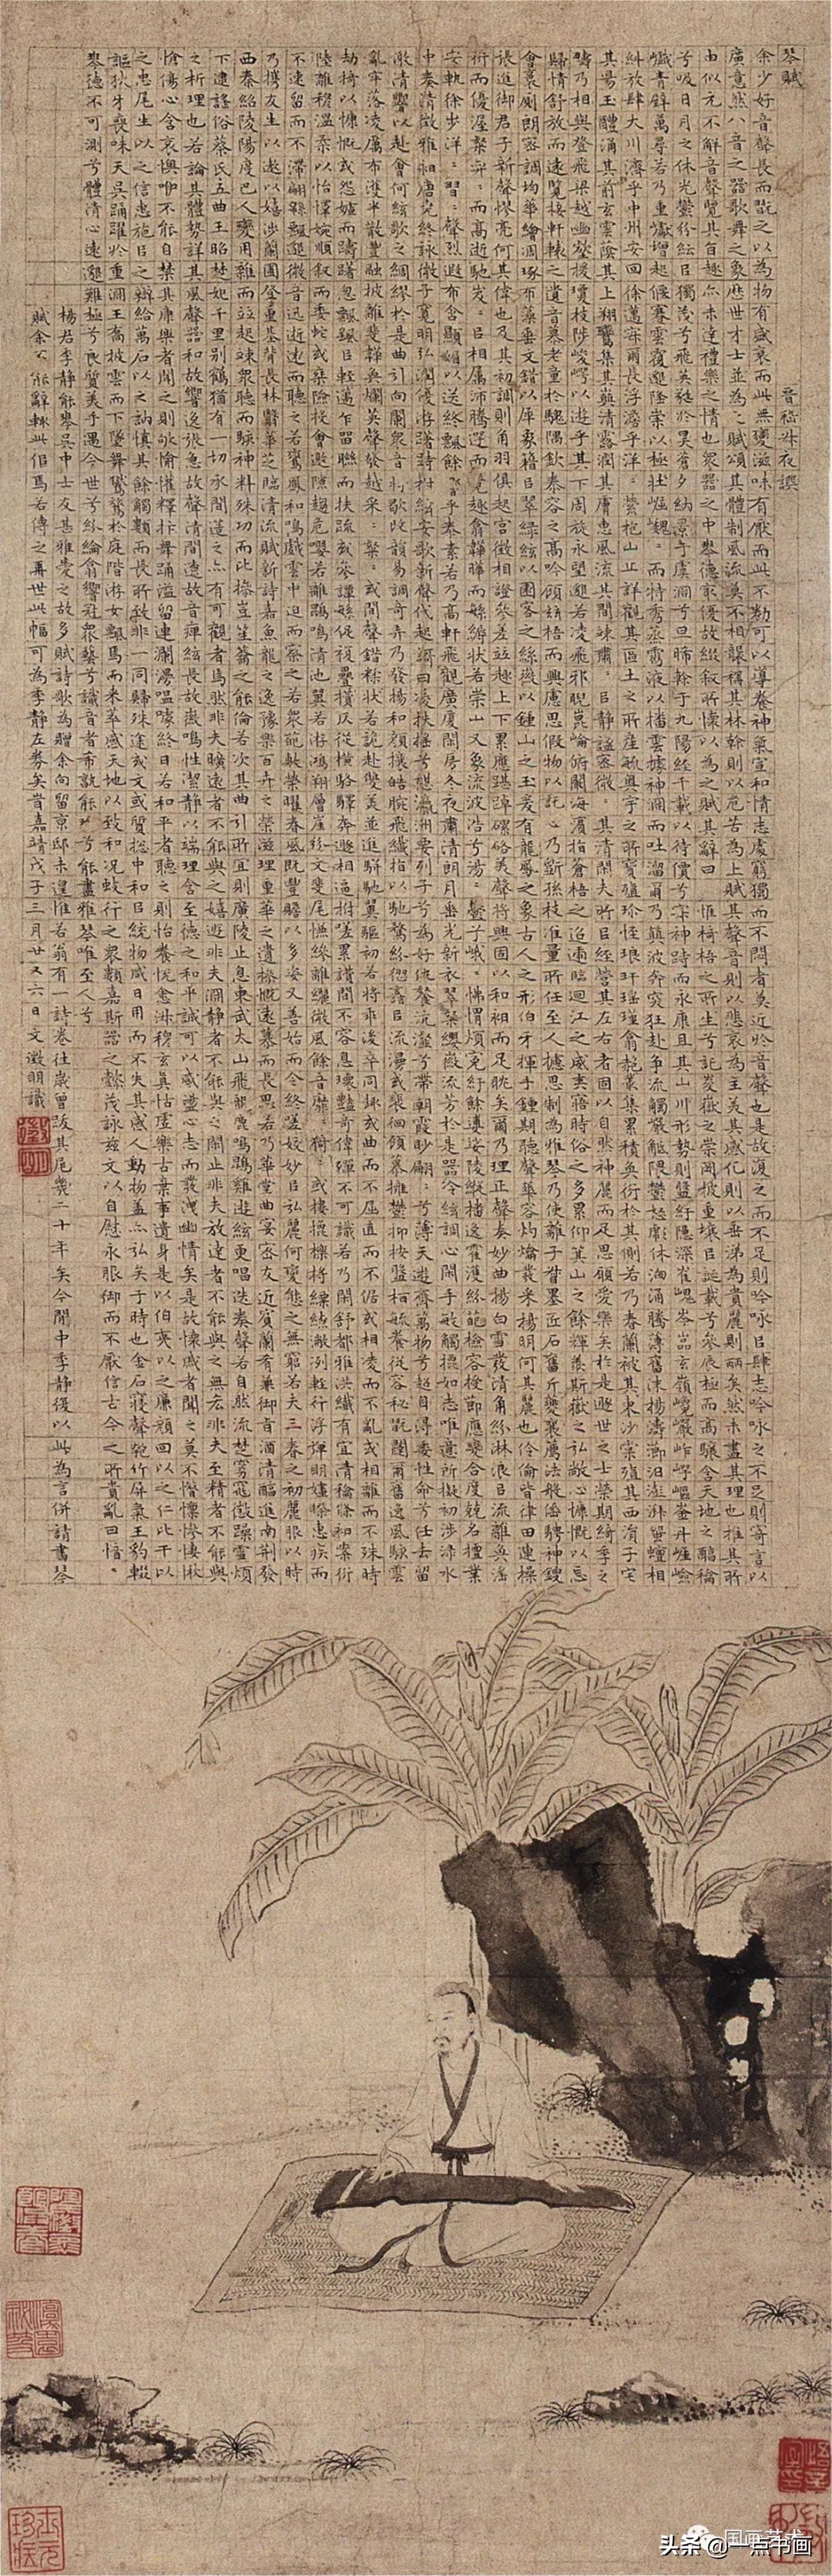 琴賦　晉嵇叔夜譔
余少好音聲長而翫之以為物有盛衰而此無變滋味有厭而此不勌可以導養神氣宣和情志處窮獨而不悶者莫近於音聲也是故復之而不足則吟詠㠯肆志吟詠之不足則寄言以
廣意然八音之器歌舞之象歷世才士並為之賦頌其體制風流莫不相襲稱其材幹則以危苦為上賦其聲音則以悲哀為主美其感化則以垂涕為貴麗則麗矣然未盡其理也推其所
由似元不解音聲覽其旨趣亦未達禮樂之情也眾器之中琴德最優故綴敘所懷以為之賦其辭曰　惟椅梧之所生兮託峻嶽之崇岡披重壤㠯誕載兮參辰極而高驤含天地之醇和
兮吸日月之休光鬱紛紜㠯獨茂兮飛英蕤於昊蒼夕納景于虞淵兮旦晞幹于九陽經千載以待價兮寂神跱而永康且其山川形勢則盤紆隱深磪嵬岑嵓玄嶺巉巖岞崿嶇崟丹崖嶮
巇青壁萬尋若乃重巘增起偃蹇雲覆邈隆崇以極壯崛巍巍而特秀蒸靈液以播雲據神淵而吐溜爾乃顛波奔突狂赴爭流觸巖觝隈鬱怒彪休洶涌騰薄奮沫揚濤瀄汩澎湃蜿蟺相
糾放肆大川濟乎中州安回徐邁寂爾長浮澹乎洋洋縈抱山丘詳觀其區土之所產毓奧宇之所寶殖珍怪琅玕瑤瑾翕赩叢集累積奐衍於其側若乃春蘭被其東沙棠殖其西涓子宅
其陽玉醴涌其前玄雲蔭其上翔鸞集其巔清露潤其膚惠風流其間竦肅肅㠯靜謐密微微其清閒夫所㠯經營其左右者固以自然神麗而足思願愛樂矣於是遯世之士榮期綺季之
疇乃相與登飛梁越幽壑援瓊枝陟峻崿以遊乎其下周旋永望邈若凌飛邪睨崑崙俯闞海湄指蒼梧之迢遞臨迴江之威夷寤時俗之多累仰箕山之餘輝羨斯嶽之弘敞心慷慨以忘
歸情舒放而遠覽接軒轅之遺音慕老童於騩隅欽泰容之高吟顧茲梧而興慮思假物以託心乃斲孫枝准量所任至人攄思制為雅琴乃使離子督墨匠石奮斤夔襄薦法般倕騁神鎪
會裛廁朗密調均華繪雕琢布藻垂文錯以犀象籍㠯翠綠絃以園客之絲徽以鍾山之玉爰有龍鳳之象古人之形伯牙揮手鍾期聽聲華容灼爚發采揚明何其麗也伶倫比律田連操
張進御君子新聲憀亮何其偉也及其初調則角羽俱起宮徵相證參發並趣上下累應踸踔磥硌美聲將興固以和昶而足耽矣爾乃理正聲奏妙曲揚白雪發清角紛淋浪㠯流離奐淫
衍而優渥粲奕奕而高逝馳岌岌㠯相屬沛騰遌而競趣翕韡曄而繁縟狀若崇山又象流波浩兮湯湯鬱兮峩峩怫㥜煩冤紆餘婆娑陵縱播逸霍濩紛葩檢容授節應變合度兢名擅業
安軌徐步洋洋習習聲烈遐布含顯媚以送終飄餘響乎泰素若乃高軒飛觀廣廈閒房冬夜肅清朗月垂光新衣翠粲纓徽流芳於是器冷絃調心閒手敏觸如志唯意所擬初涉淥水
中奏清徵雅昶唐堯終詠微子寬明弘潤優遊躇跱拊絃安歌新聲代起謌曰凌扶搖兮憩瀛洲要列子兮為好仇餐沆瀣兮帶朝霞眇翩翩兮薄天遊齊萬物兮超自得委性命兮任去留
激清響以赴會何絃歌之綢繆於是曲引向闌眾音將歇改韻易調奇弄乃發揚和顏攘皓腕飛纖指以馳騖紛㒊譶㠯流漫或徘徊顧慕擁鬱抑按盤桓毓養從容祕翫闥爾奮逸風駭雲
亂牢落凌厲布濩半散豐融披離斐韡奐爛英聲發越采采粲粲或間聲錯糅狀若詭赴雙美並進駢馳翼驅初若將乖後卒同趣或曲而不屈直而不倨或相凌而不亂或相離而不殊時
劫掎以慷慨或怨㜘而躊躇忽飄颻㠯輕邁乍留聯而扶疏或參譚繁促複疊攢仄從橫駱驛奔遯相逼拊嗟累讚間不容息瓌豔奇偉殫不可識若乃閒舒都雅洪纖有宜清和條昶案衍
陸離穆溫柔以怡懌婉順敘而委蛇或乘險投會邀隙趨危嚶若離鵾鳴清池翼若游鴻翔層崖紛文斐尾慊縿離纚微風餘音靡靡猗猗或摟櫟捋縹繚潎冽輕行浮彈明嫿慧疾而
不速留而不滯翩綿飄邈微音迅逝遠而聽之若鸞鳳和鳴戲雲中迫而察之若眾葩敷榮曜春風既豐贍以多姿又善始而令終嗟姣妙㠯弘麗何變態之無窮若夫三春之初麗服以時
乃攜友生以遨以嬉涉蘭圃登重基背長林翳華芝臨清流賦新詩嘉魚龍之逸豫樂百卉之榮滋理重華之遺操慨遠慕而長思若乃華堂曲宴密友近賓蘭肴兼御旨酒清醇進南荊發
西秦紹陵陽度巴人變用雜而並起竦眾聽而駭神料殊功而比操豈笙籥之能倫若次其曲引所宜則廣陵止息東武太山飛龍鹿鳴鵾雞遊絃更唱迭奏聲若自然流楚窈窕懲躁雪煩
下逮謠俗蔡氏五曲王昭楚妃千里別鶴猶有一切承間簉乏亦有可觀者焉然非夫曠遠者不能與之嬉遊非夫淵靜者不能與之閒止非夫放達者不能與之無吝非夫至精者不能與
之析理也若論其體勢詳其風聲器和故響逸張急故聲清間遼故音痺絃長故徽鳴性潔靜以端理含至德之和平誠可以感盪心志而發洩幽情矣是故懷慼者聞之莫不憯懍慘悽愀
愴傷心含哀懊咿不能自禁其康樂者聞之則欨愉懽釋抃舞踊溢留連瀾漫嗢噱終日若和平者聽之則怡養悅愉淑穆玄真恬虛樂古棄事遺身是以伯夷以之廉顏回以之仁比干以
之忠尾生以之信惠施㠯之辯給萬石以之訥慎其餘觸類而長所致非一同歸殊途或文或質揔中和㠯統物咸日用而不失其感人動物蓋亦弘矣于時也金石寢聲匏竹屏氣王豹輟
謳狄牙喪味天吳踊躍於重淵王喬披雲而下墜舞鸑鷟於庭階游女飄焉而來萃感天地以致和況蚑行之眾類嘉斯器之懿茂詠茲文以自慰永服御而不厭信古今之所貴亂曰愔愔
琴德不可測兮體清心遠邈難極兮良質美手遇今世兮紛綸翕響冠眾藝兮識音者希孰能珍兮能盡雅琴唯至人兮
楊君季靜能琴吳中士友甚雅愛之故多賦詩歌為贈余向留京邸未遑惟若翁有一詩卷往歲曾跋其尾幾二十年矣今閒中季靜復以此為言併請書琴
賦余不能辭輒此佀焉若傳之再世此幅可為季靜左券矣旹嘉靖戊子三月廿又六日文徵明識
国画艺术
头条 @一点书画